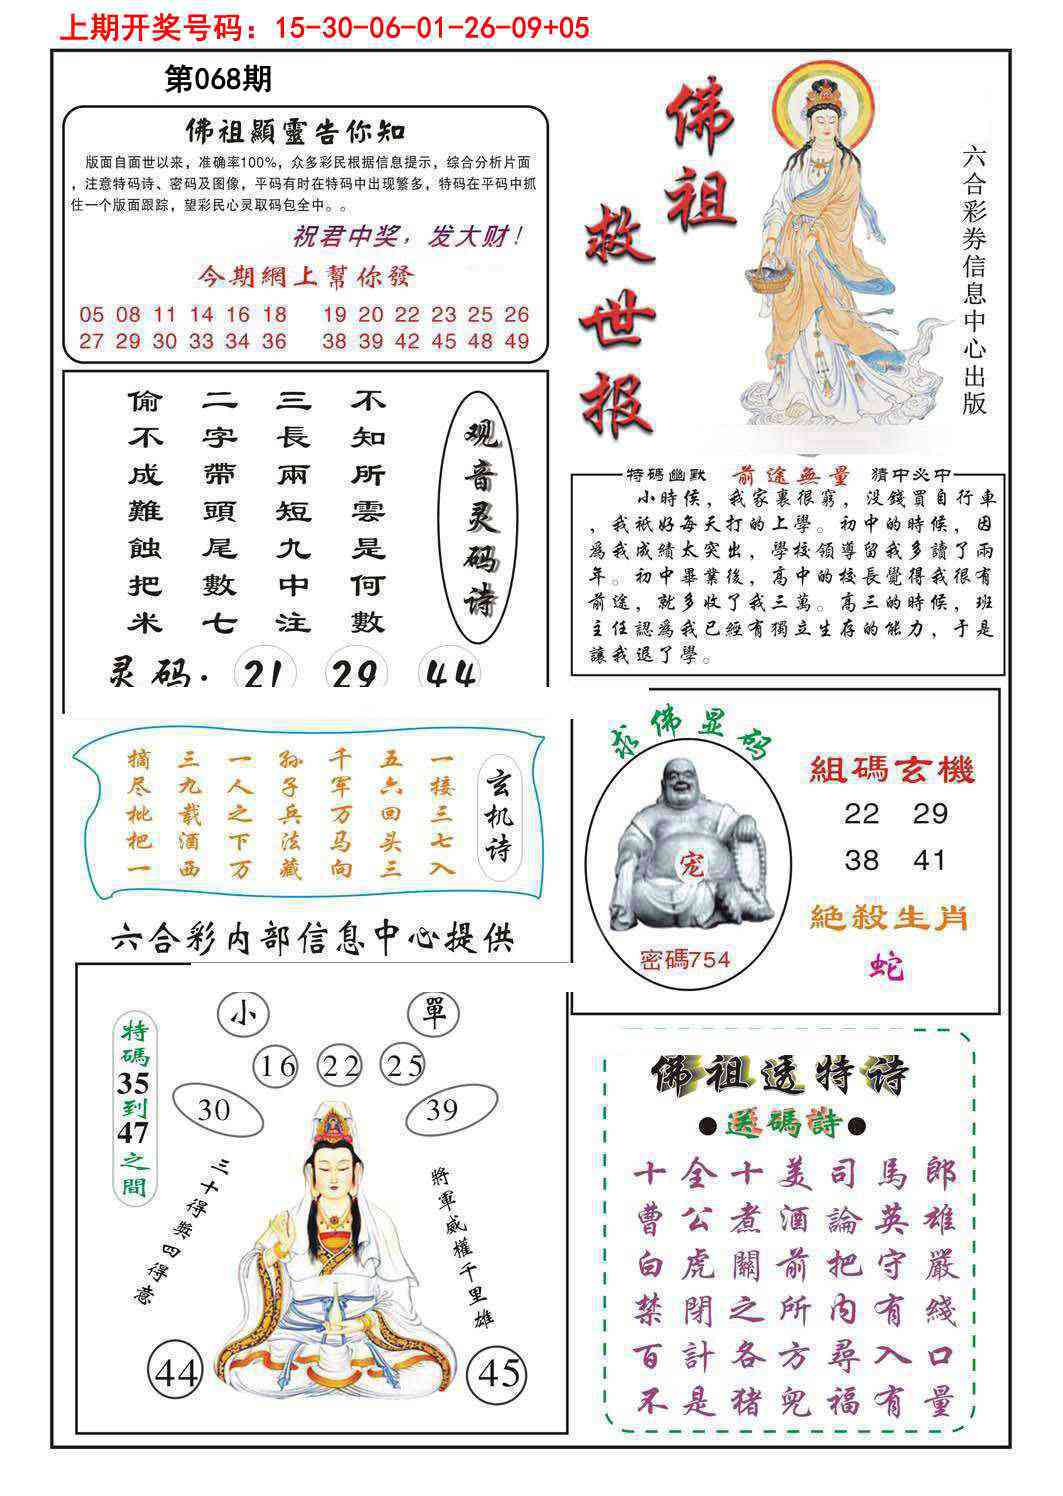 上期开奖号码：15-30-06-01-26-09+05
第068期
佛祖顯靈告你知
版面自面世以来，准确率100%，众多彩民根据信息提示，综合分析片面
，注意特码诗、密码及图像，平码有时在特码中出现繁多，特码在平码中抓
住一个版面跟踪，望彩民心灵取码包全中。。
祝君中奖，发大财！
今期網上幫你發
05 08 11 14 16 18 19 20 22 23 25 26
27 29 30 33 34 36 38 39 42 45 48 49
佛祖
救世报
六合彩券信息中心出版
观音灵码诗
不知所雲是何數
三長兩短九中注
二字帶頭尾數七
偷不成難蝕把米
灵码．21 29 44
特碼幽默 前途無量 猜中必中
小時侯，我家裏很窮，没錢買自行車
，我衹好每天打的上學。初中的時候，因
爲我成績太突出，學校領導留我多讀了兩
年。初中畢業後，高中的校長覺得我很有
前途，就多收了我三萬。高三的時候，班
主任認爲我已經有獨立生存的能力，于是
讓我退了學。
玄机诗
一接三七入
五六回头三
千军万马向
孙子兵法藏
一人之下万
三九载酒西
摘尽枇把一
六合彩内部信息中心提供
求佛显码
宠
密碼754
組碼玄機
22 29
38 41
絶殺生肖
蛇
特碼35到47之間
小 單
16 22 25
30 39
三十得獎四得意
將軍威權千里雄
44 45
佛祖透特诗
●送碼詩●
十全十美司馬郎
曹公煮酒論英雄
白虎關前把守嚴
禁閉之所内有綫
百計各方尋入口
不是猪兜福有量